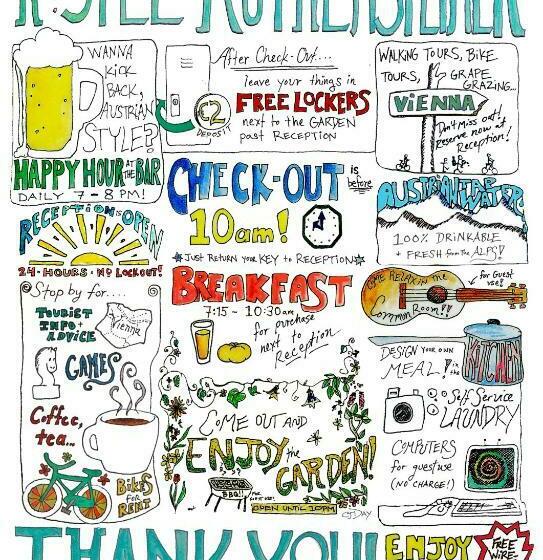 WANNA
KICK
BACK,
AUSTRIAN
STYLE?
HAPPY HOUR AT THE BAR
DAILY 7 - 8 PM!
After Check-Out....
leave your things in
FREE LOCKERS
next to the GARDEN
past RECEPTION
€2
DEPOSIT
WALKING TOURS, BIKE
TOURS, GRAPE
GRAZING...
VIENNA
Don't miss out!
Reserve now at
Reception!
CHECK-OUT is before
10am!
*JUST RETURN YOUR KEY TO RECEPTION*
RECEPTION IS OPEN
24-HOURS • NO LOCKOUT!
AUSTRIAN TAP WATER
100% DRINKABLE
+ FRESH from the ALPS!
BREAKFAST
7:15 ~ 10:30 am
for purchase
next to
Reception
Stop by for....
TOURIST
INFO +
ADVICE
Vienna
GAMES
Coffee,
tea...
BIKES
FOR
RENT
COME RELAX IN the
Common Room!!
for Guest
use!
DESIGN YOUR OWN
MEAL! in the
KITCHEN
Self Service
LAUNDRY
COMPUTERS
for guest use
(NO CHARGE!)
COME OUT AND
ENJOY the
GARDEN!
BBQ!!
OPEN UNTIL 10PM
THANK YOU!
ENJOY
FREE
WIRE-